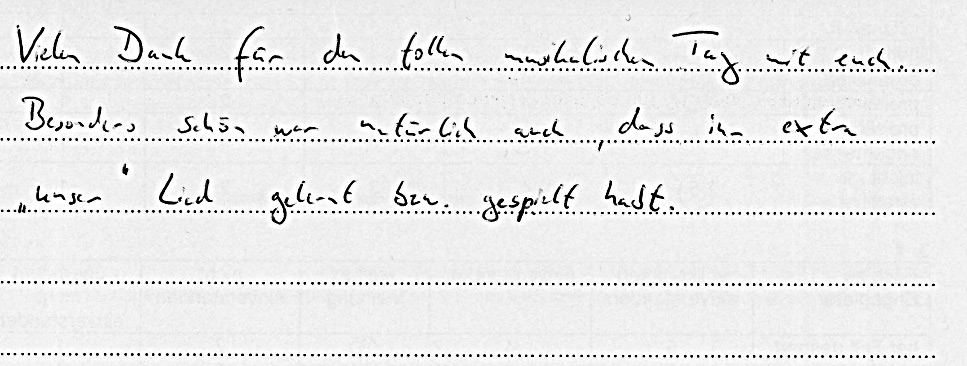 Vielen Dank für den tollen musikalischen Tag mit euch.
Besonders schön war natürlich auch, dass ihr extra
„unser" Lied gelernt bzw. gespielt habt.